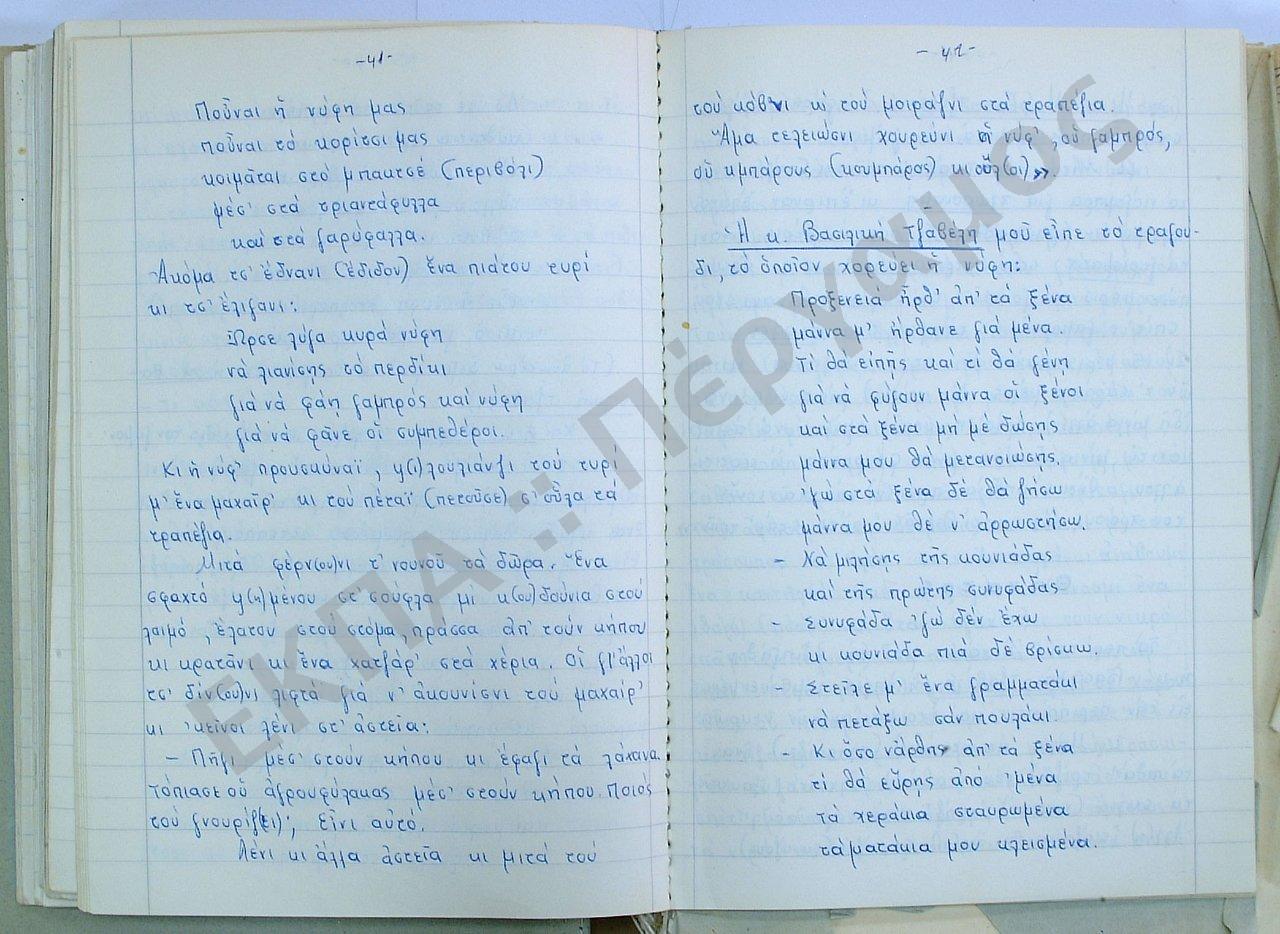 -41-
Ποὖναι ἡ νύφη μας
ποὖναι τό κορίτσι μας
κοιμᾶται στό μπαxτσέ (περιβόλι)
μέσ' στά τριαντάφυλλα
καί στά γαρύφαλλα.
Ἀκόμα τσ' ἔδναν (ἔδιδον) ἕνα πιάτου τυρί
κι τσ' ἔλιγανι:
λύγα κυρά νύφη
νά λιανίσης τό περδίκι
γιά νά φάη γαμπρός καί νύφη
γιά νά φᾶνε οἱ συμπεθέροι.
Κι ἡ νύφ' προυσκύναϊ, τού τυρί
μ' ἕνα μαχαῖρ' κι τού πέταϊ (πετοῦσε) σ' οὗλα τά
τραπέζια.
Μιτά φέρν(ου)νι τ' νουνοῦ τά δῶρα. Ἕνα
σφαχτό ψ(η)μένου στ' σούφλα μι κ(ου)δούνια στού
λαιμό, ἔλατου στού στόμα, πράσσα ἀπ' τούν κήπου
κι κρατᾶνι κι ἕνα χατζάρ' στά χέρια. Οἱ ἄλλοι
τσ' δίν(ου)νι λιφτά γιά ν' ἀκουνίσνι τού μαχαίρ'
κι 'κεῖνοι λένι στ' ἀστεῖα:
– Πῆγι μέσ' στούν κήπου κι ἔφαγι τά λάχανα
τόπιασε οὑ ἀγρουφύλακας μέσ' στούν κήπου. Ποιός
τού γνουρίζ(ει); εἶνι αὐτό.
Λένι κι ἄλλα ἀστεῖα κι μιτά τού
-42-
τού κόβνι κι τού μοιράζνι στά τραπέζια
Ἅμα τελειώσνι χουρεύνι ἡ νύφ', οὑ γαμπρός,
οὑ κμπάρους (κουμπάρος) κι οὗλ(οι)».
Ἡ κ. Βασιλική Τζαβέλη μοῦ εἶπε τό τραγού-
δι, τό ὁποῖον χορεύει ἡ νύφη:
Προξενειά ἦρθ' ἀπ' τά ξένα
μάννα μ' ἤρθανε γιά μένα
τί θά εἰπῆς καί τί θά γένη
γιά νά φύγουν μάννα οἱ ξένοι
καί στά ξένα μή μέ δώσης
μάννα μου θά μετανοιώσης.
'γώ στά ξένα δέ θά ζήσω
μάννα μου θέ ν' ἀρρωστήσω
– Νά μιλήσης τῆς κουνιάδας
καί τῆς πρώτης συνυφάδας
– Συνυφάδα 'γώ δέν ἔχω
κι κουνιάδα πιά δέ βρίσκω
– Στεῖλε μ' ἕνα γραμματάκι
νά πετάξω σάν πουλάκι
– Κι ὅσο νἄρθης ἀπ' τά ξένα
τί θά εὕρης ἀπό 'μένα
τά χεράκια σταυρωμένα
τά ματάκια μου κλεισμένα.
ΕΚΠΑ :: Πέργαμος